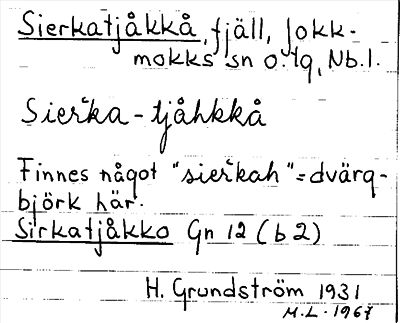 Sierkatjåkkå, fjäll, Jokk-
mokks sn o. tg, Nb.l.
Sierˈka-tjåhkkå
Finnes något "sierˈkah" = dvärg-
björk här.
Sirkatjåkko Gn 12 (b 2)
H. Grundström 1931
M.L. 1967